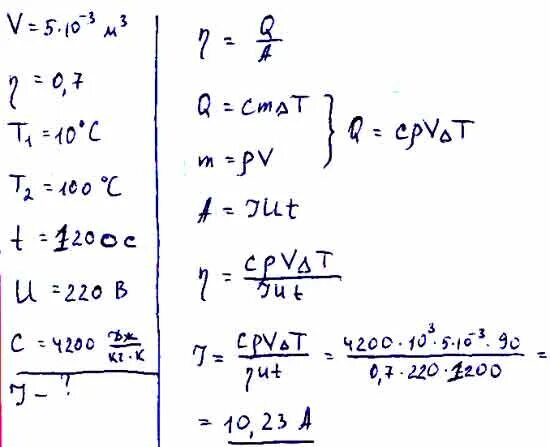 V = 5·10⁻³ м³
η = 0,7
T₁ = 10°C
T₂ = 100°C
t = 1200 с
U = 220 В
C = 4200 Дж/кг·К
J – ?
η = Q/A
Q = cmΔT
m = ρV
} Q = cρVΔT
A = JUt
η = cρVΔT/JUt
J = cρVΔT/ηUt = 4200·10³·5·10⁻³·90/0,7·220·1200 =
= 10,23 А